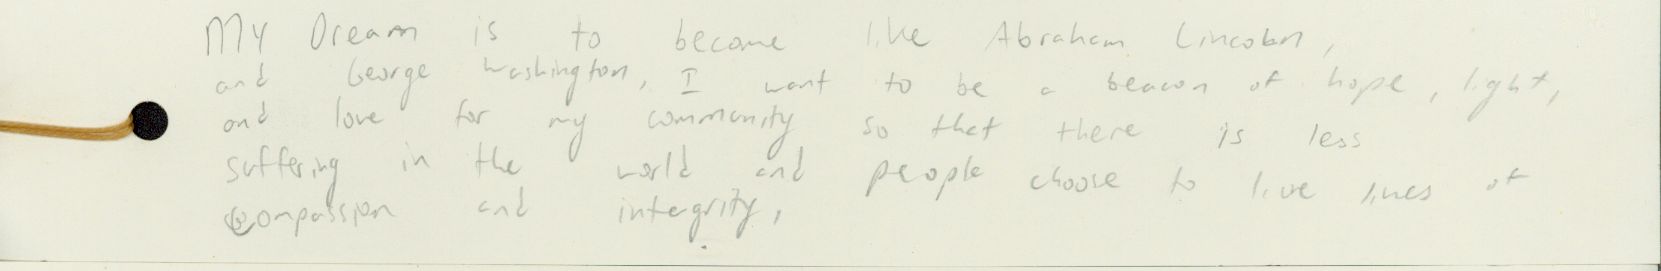 My Dream is to become like Abraham Lincoln,
and George Washington, I want to be a beacon of hope, light,
and love for my community so that there is less
suffering in the world and people choose to live lives of
compassion and intergrity,